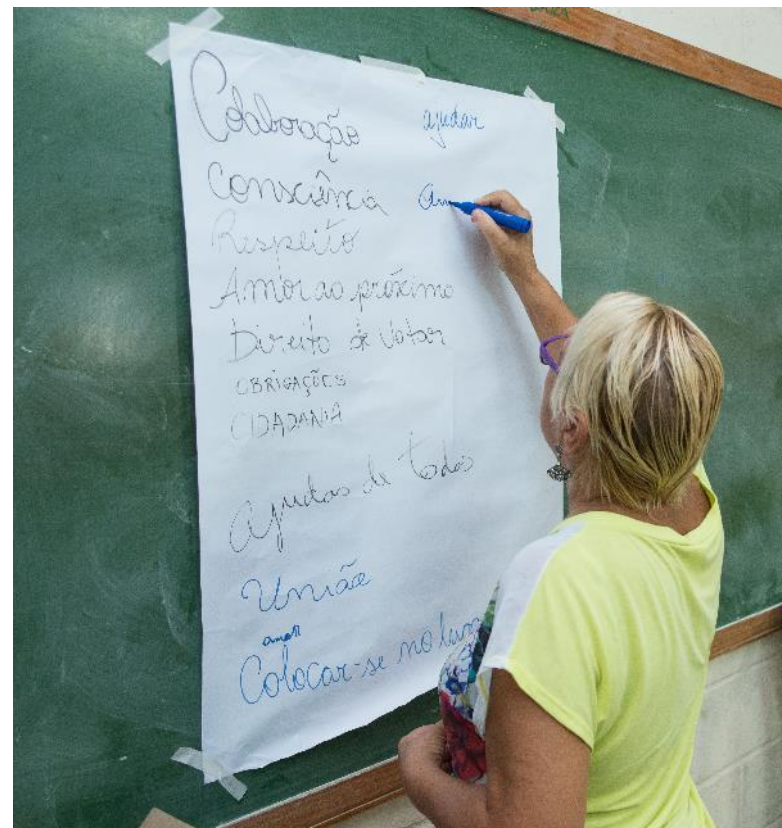 Colaboração ajudar
Consciência
Respeito
Amor ao próximo
Direito de Votar
OBRIGAÇÕES
CIDADANIA
de todos
União
amor
Colocar-se no